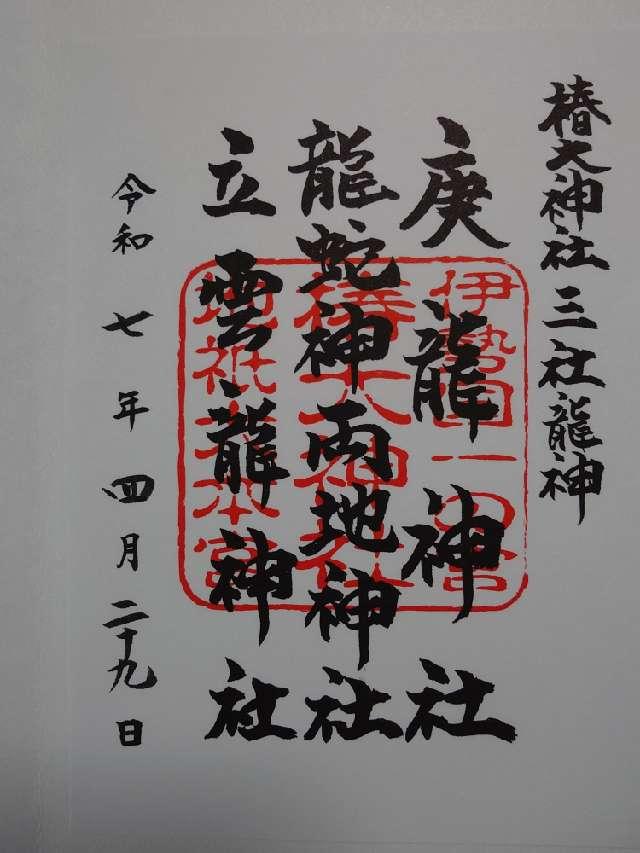 椿大神社三社龍神
庚龍神社
龍蛇神両地神社
立雲龍神社
令和七年四月二十九日
伊勢国一の宮
椿大神社
地祇大本宮